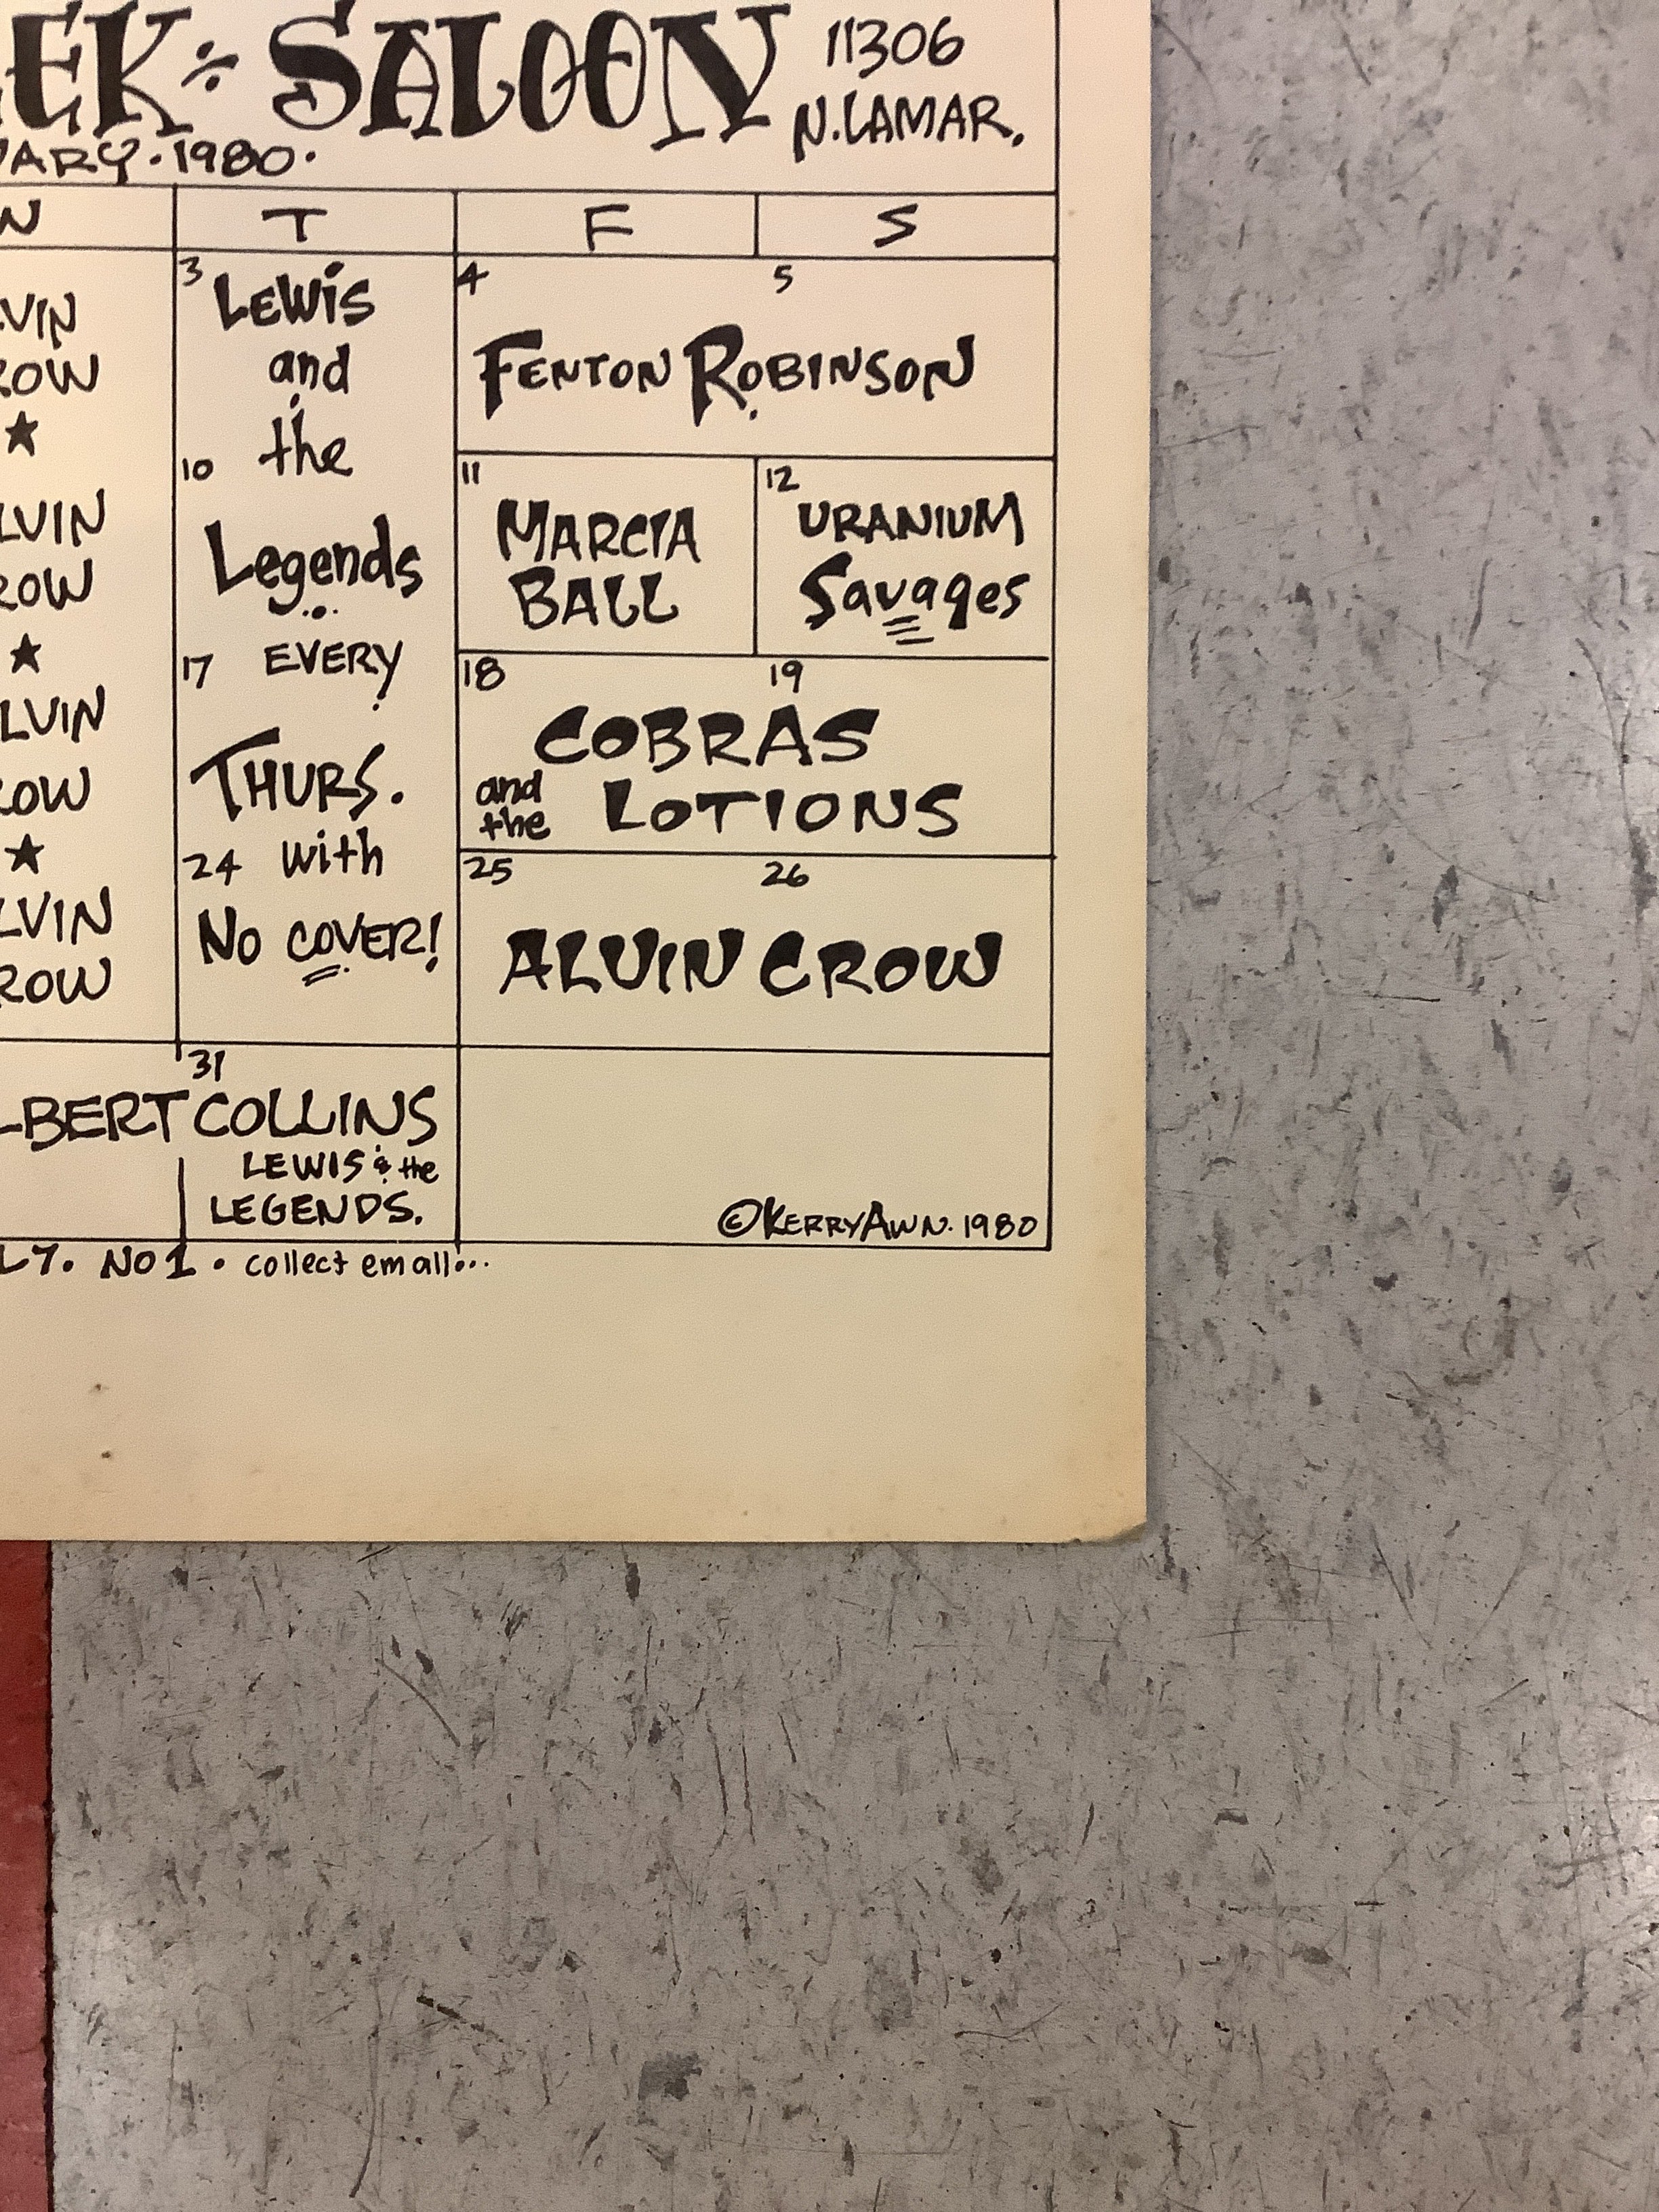 EEK ÷ SALOON 11306
N. LAMAR.
UARY · 1980 ·
W T F S
3 LEWIS
and
the
10
Legends
17 EVERY
THURS.
24 with
NO COVER!
4 5
FENTON ROBINSON
11 MARCIA
BALL
12 URANIUM
Savages
18 19
COBRAS
and the LOTIONS
25 26
ALVIN CROW
LVIN
ROW
★
LVIN
ROW
★
LVIN
ROW
★
LVIN
ROW
31
LBERT COLLINS
LEWIS & the
LEGENDS.
© KERRY AWN. 1980
L7. NO 1 · collect em all...